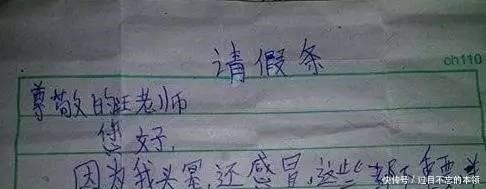 请假条
ch110
尊敬的旺老师
您好,
因为我头晕,还感冒,这些都
快传号 / 过目不忘的本领